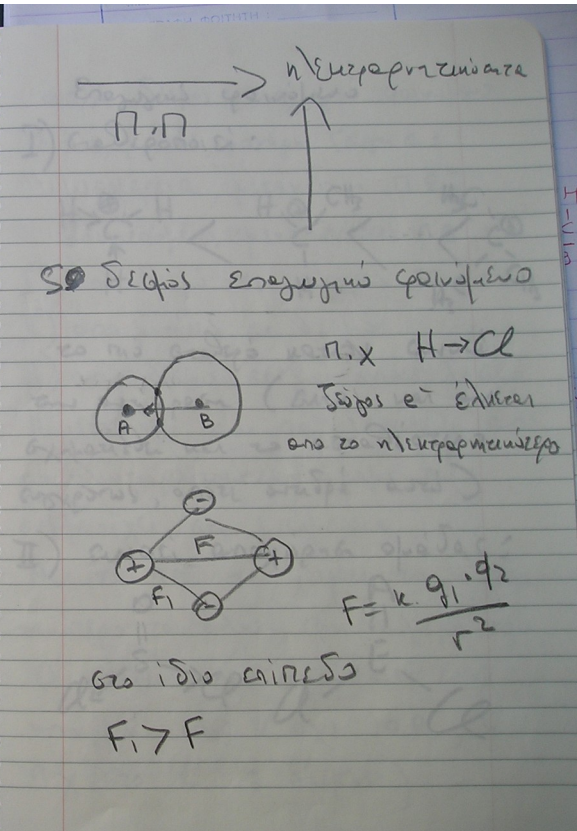 ηλεκτραρνητικότητα
Π.Π
δεσμός επαγωγικό φαινόμενο
π.χ H→Cl
ζεύγος e⁻ έλκεται
A B
απο το ηλεκτραρνητικότερο
-
+ F +
F₁ -
F = κ · q₁ · q₂ / r²
στο ίδιο επίπεδο
F₁ > F